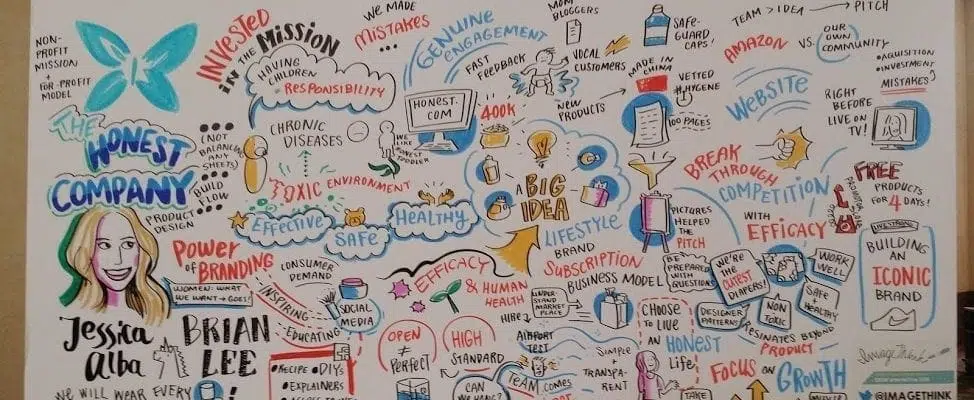 NON-
PROFIT
MISSION
+
FOR-PROFIT
MODEL
THE
HONEST
COMPANY
(NOT
BALANCING
ANY
SHEETS)
BUILD
FLOW
PRODUCT
DESIGN
Jessica
Alba
BRIAN
LEE
WE WILL WEAR EVERY
INVESTED
IN THE MISSION
HAVING
CHILDREN
= RESPONSIBILITY
CHRONIC
DISEASES
TOXIC ENVIRONMENT
EFFECTIVE
SAFE
HEALTHY
POWER
of BRANDING
WOMEN: WHAT
WE WANT → GOES!
CONSUMER
DEMAND
INSPIRING
EDUCATING
SOCIAL
MEDIA
• RECIPE • DIYs
• EXPLAINERS
WE MADE
MISTAKES
...
GENUINE
ENGAGEMENT
FAST
FEEDBACK
HONEST.
COM
400K
MOM
BLOGGERS
VOCAL
CUSTOMERS
NEW
PRODUCTS
A
BIG
IDEA
LIFESTYLE
BRAND
EFFICACY
& HUMAN
HEALTH
SUBSCRIPTION
BUSINESS MODEL
UNDER-
STAND
MARKET
PLACE
HIRE
OPEN
≠
PERFECT
HIGH
STANDARD
AIRPORT
TEST
CAN
WE HANG?
TEAM COMES
SIMPLE
TRANSPA-
RENT
SAFE-
GUARD
CAPS!
MADE IN
CHINA
VETTED
100 PAGES
PICTURES
HELPED
THE
PITCH
BE
PREPARED
WITH
QUESTIONS
CHOOSE
TO LIVE
AN
HONEST
Life
TEAM > IDEA → PITCH
AMAZON
VS.
OUR
OWN
COMMUNITY
• AQUISITION
• INVESTMENT
MISTAKES
WEBSITE
RIGHT
BEFORE
LIVE ON
TV!
BREAK
THROUGH
COMPETITION
WITH
EFFICACY
FREE
PRODUCTS
FOR
4 DAYS!
WE'RE
THE
CUTEST
DIAPERS!
DESIGNER
PATTERNS
NON
TOXIC
WORK
WELL
SAFE
+
HEALTHY
RESINATES BEYOND
PRODUCT
BUILDING
AN
ICONIC
BRAND
FOCUS ON GROWTH
TAKE
ImageThink
@IMAGETHINK